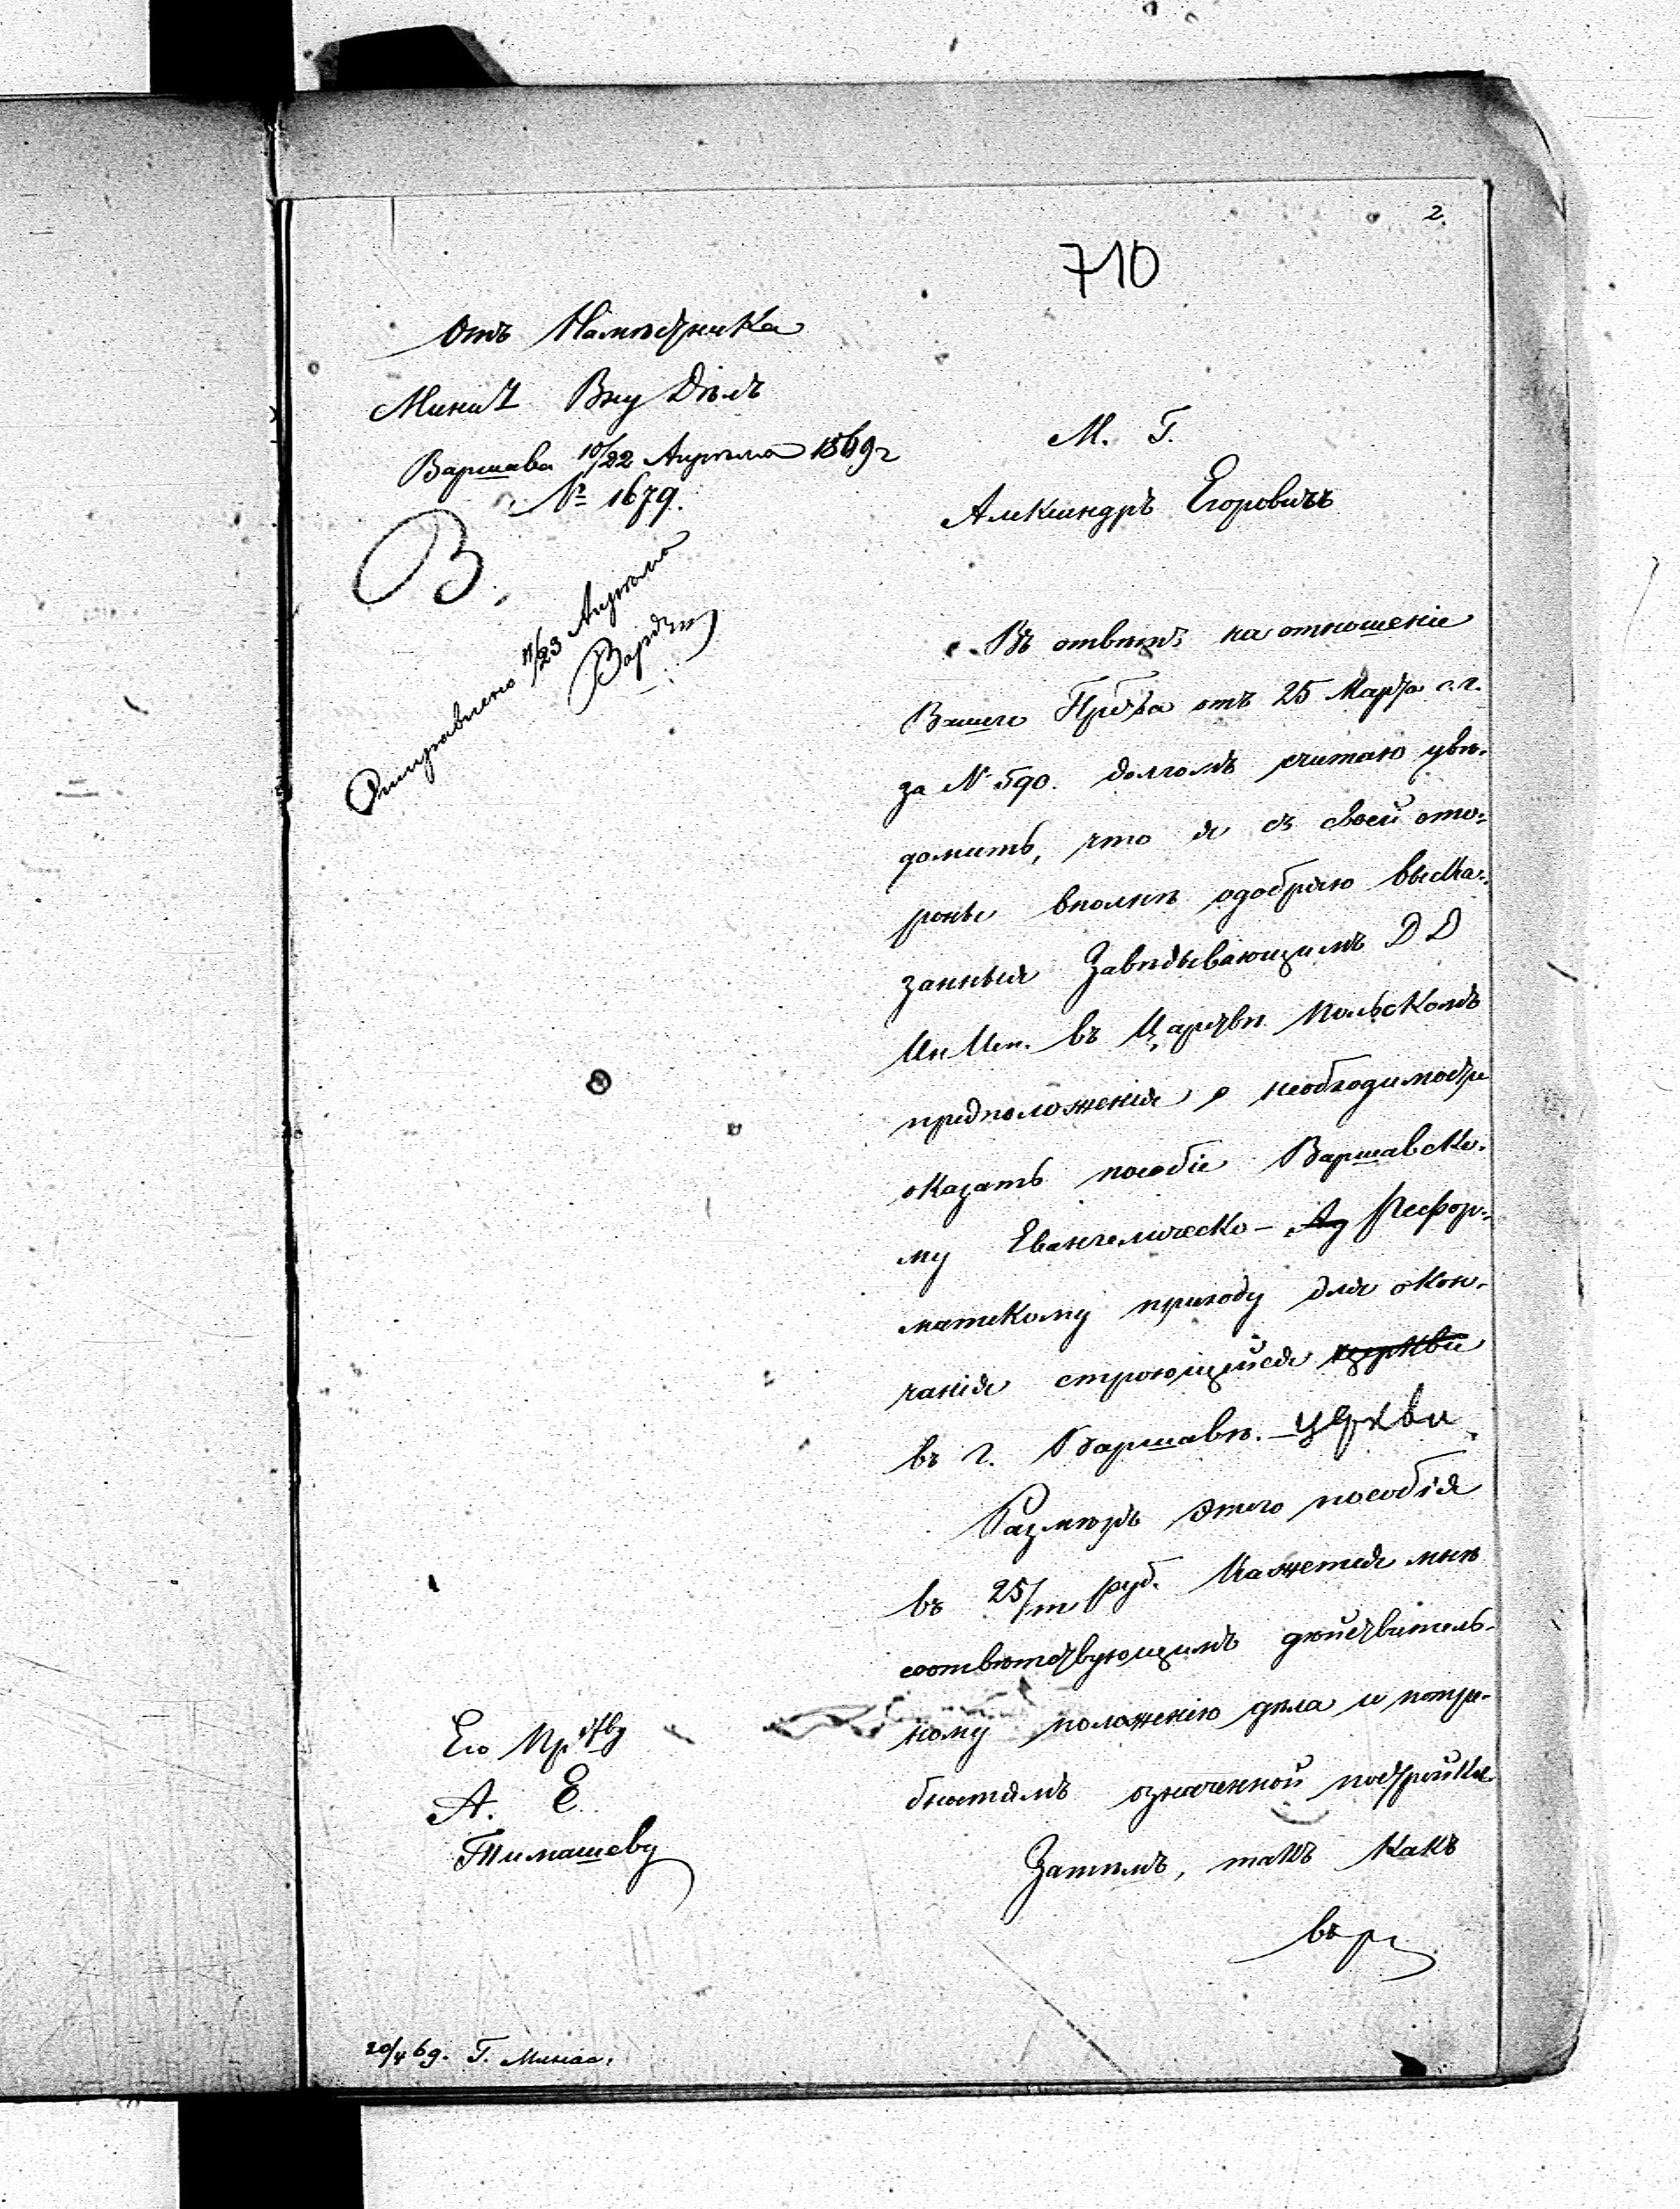 2.
710
Отъ Намѣстника
Минист Вну Дѣлъ
Варшава 10/22 Апрѣля 1869 г
№ 1679.
В.
Отправлено 11/23 Апрѣля
М. Г.
Александръ Егоровичъ
Въ отвѣтъ на отношеніе
Вашего Пр-ства отъ 25 Марта с.г.
за № 590. долгомъ считаю увѣ-
домить, что я съ своей сто-
роны вполнѣ одобряю выска-
занныя Завѣдывающимъ Д Д
Ин Исп. въ Царствѣ Польскомъ
предположенія о необходимости
оказать пособіе Варшавско-
му Евангелическо- Ау Рефор-
матскому приходу для окон-
чанія строющейся церкви
въ г. Варшавѣ. церкви
Размѣръ этого пособія
въ 25/m руб. кажется мнѣ
соотвѣтствующимъ дѣйствитель-
ному положенію дѣла и потре-
бностямъ означенной постройки.
Затѣмъ, такъ какъ
Его Пр-ству
А. Е
Тимашеву
20/4 69. Г.